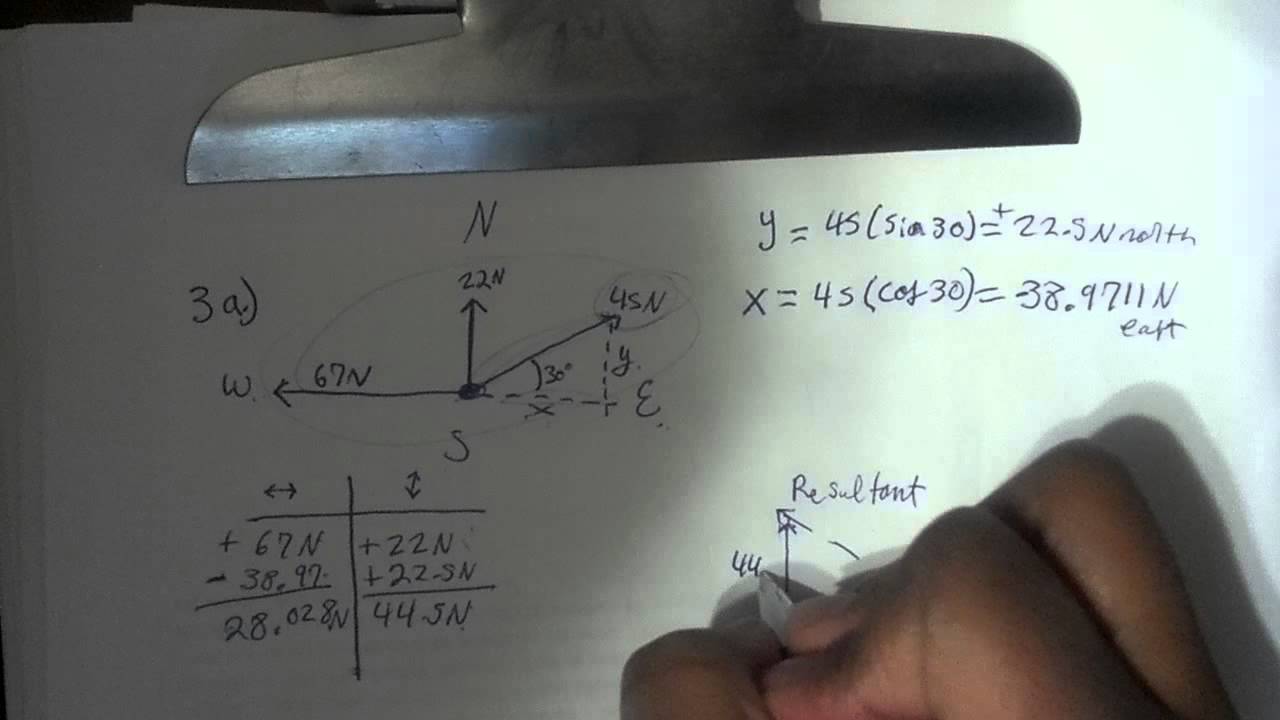 N
3a)
22N
45N
y
30°
67N
W.
x
E.
S
y = 45(sin30)=+22.5N north
x = 45(cos30)= -38.9711N
east
↔ ↕
+ 67N +22N
- 38.97 +22.5N
28.028N 44.5N
Resultant
44